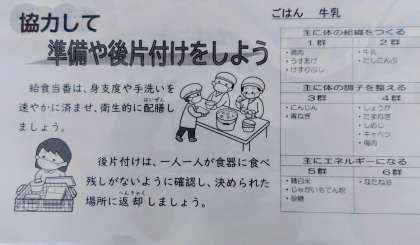 協力して
準備や後片付けをしよう
給食当番は、身支度や手洗いを
速やかに済ませ、衛生的に配膳し
はいぜん
ましょう。
後片付けは、一人一人が食器に食べ
残しがないように確認し、決められた
場所に返却しましょう。
へんきゃく
ごはん 牛乳
主に体の組織をつくる
1群 2群
・鶏肉 ・牛乳
・うすあげ ・だしこんぶ
・けずりぶし
主に体の調子を整える
3群 4群
・にんじん ・しょうが
・青ねぎ ・たまねぎ
・しめじ
・キャベツ
・梅肉
主にエネルギーになる
5群 6群
・精白米 ・なたね油
・じゃがいもでん粉
・砂糖